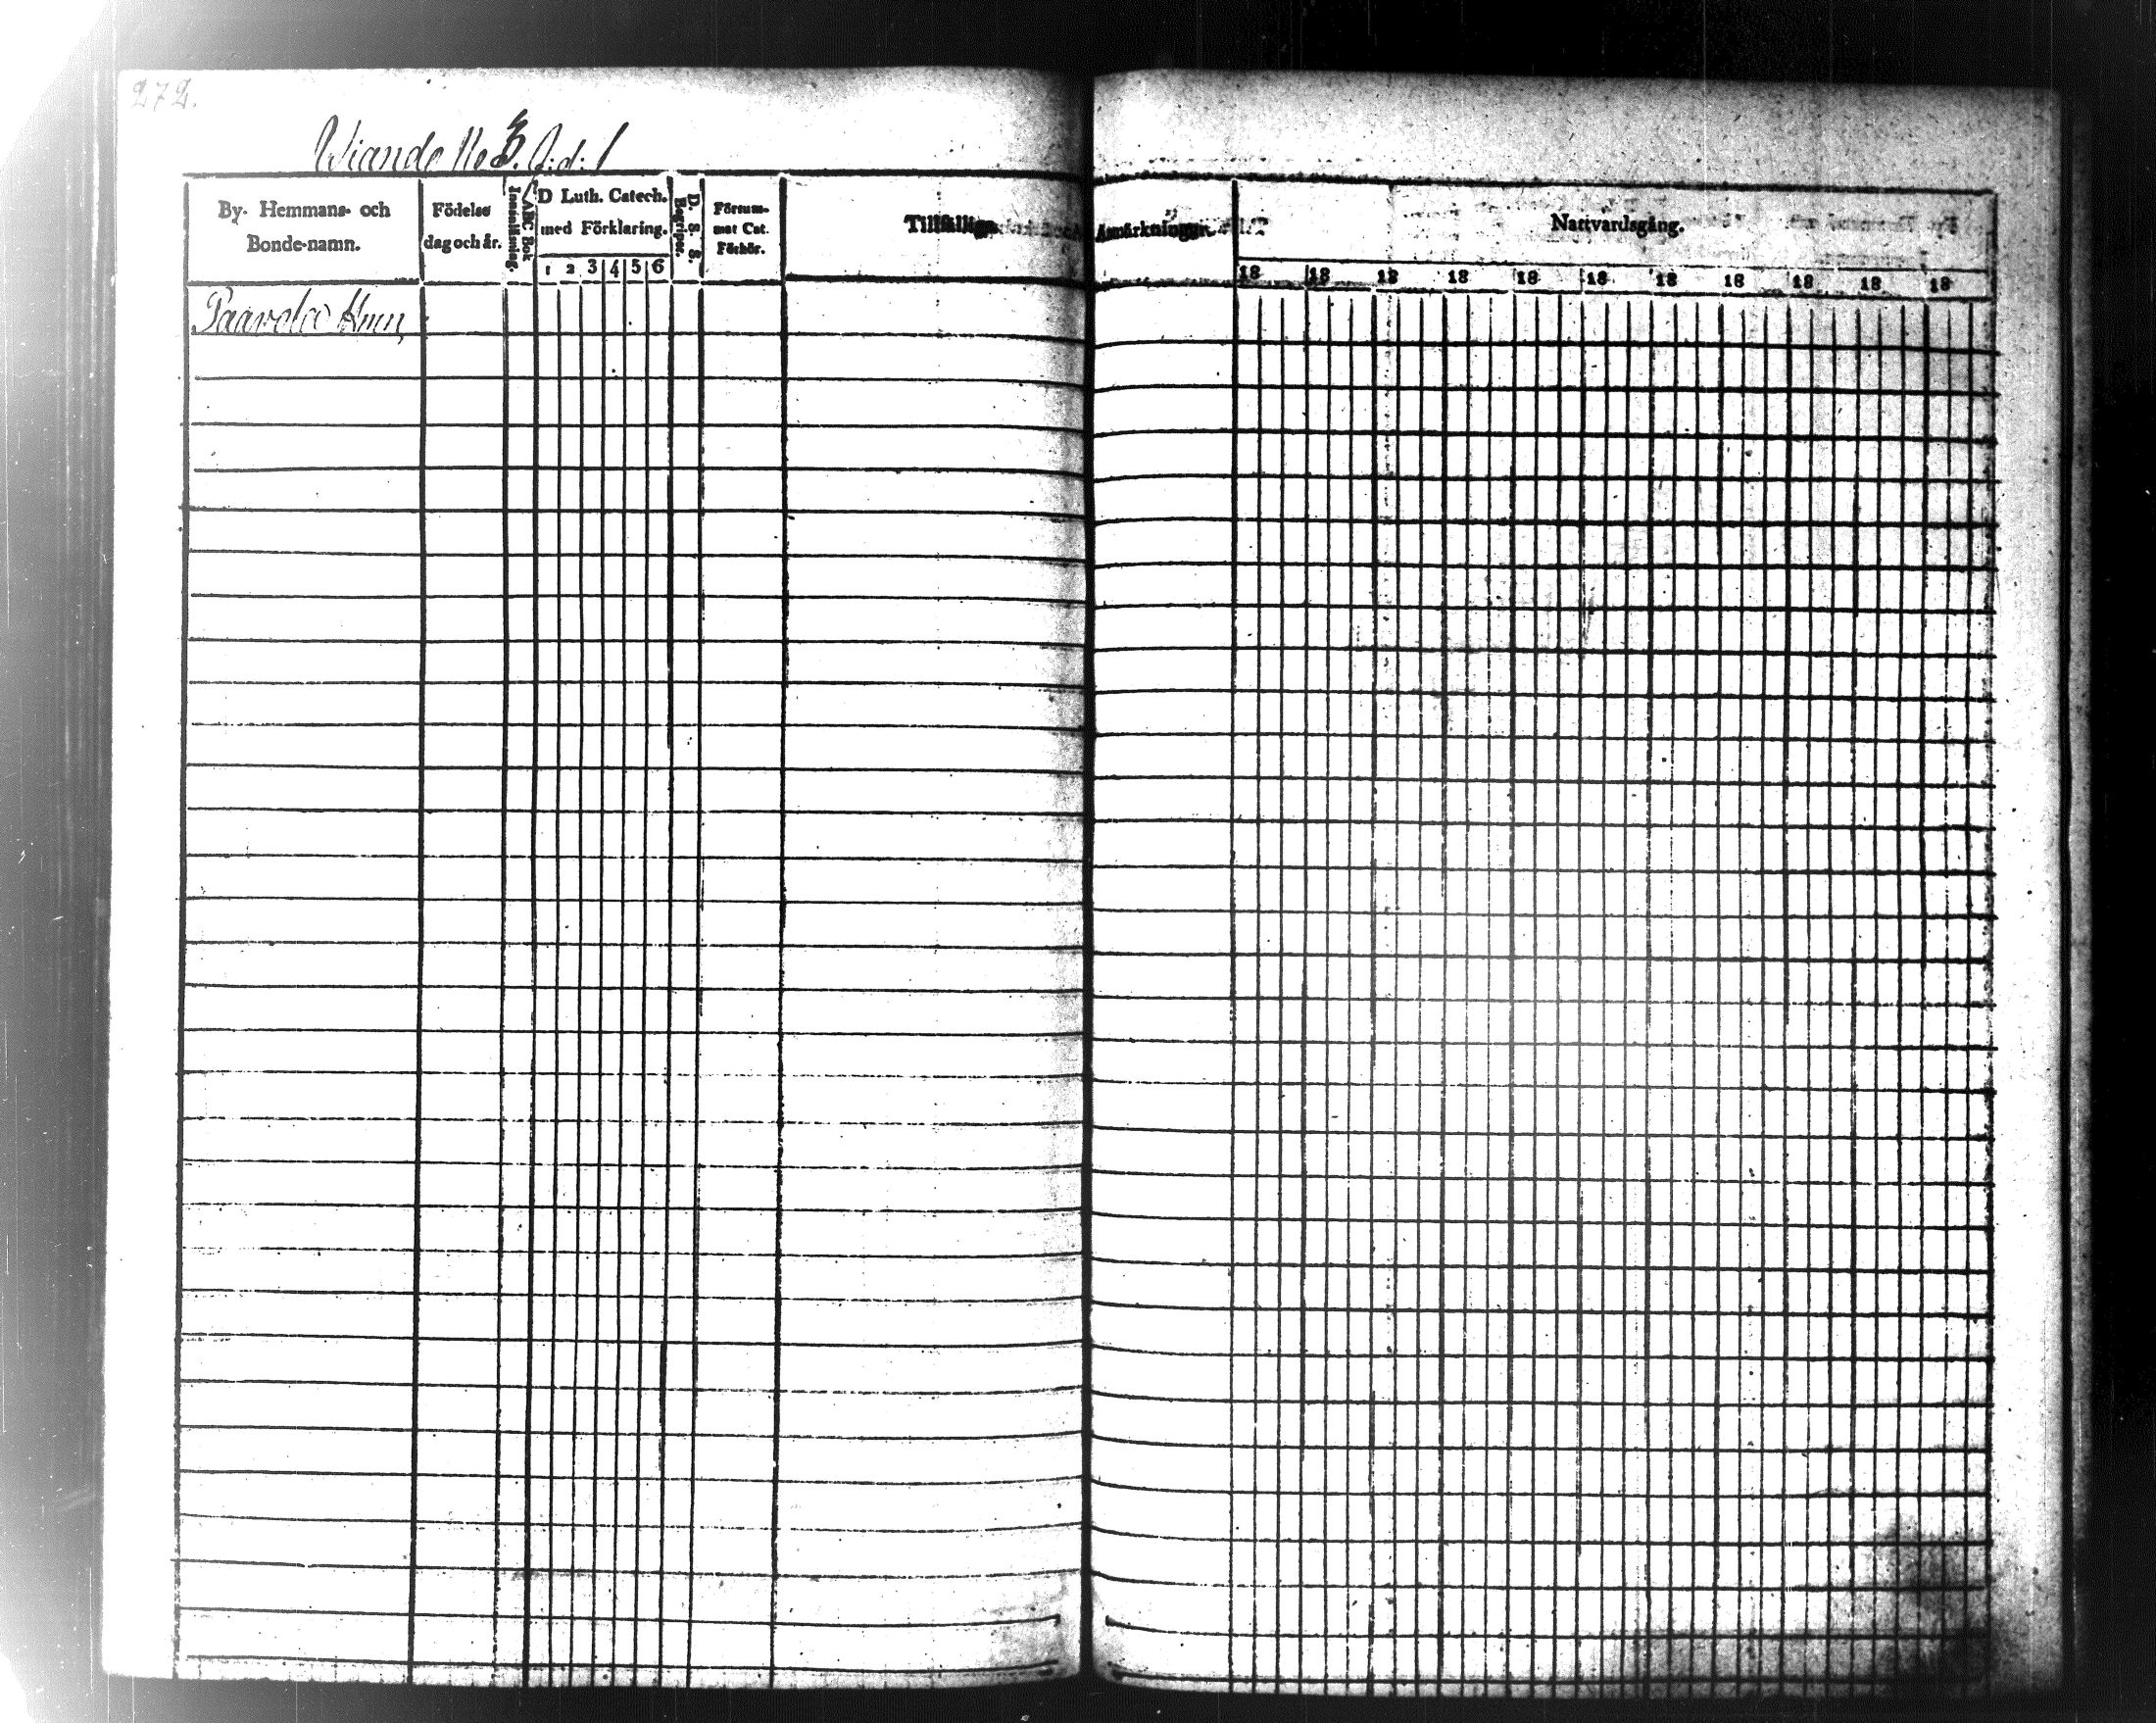 272.
Wiando No 3. S:d: 1
By- Hemmans- och
Bonde-namn.
Födelse
dag och år.
Innanläsning.
ABC Bok
D Luth. Catech.
med Förklaring.
1 2 3 4 5 6
D. S. S.
Begriper.
Försum-
mat Cat.
Förhör.
Tillfälliga
Anmärkningar.
Nattvardsgång.
18 18 18 18 18 18 18 18 18 18 18
Paavola Hmn